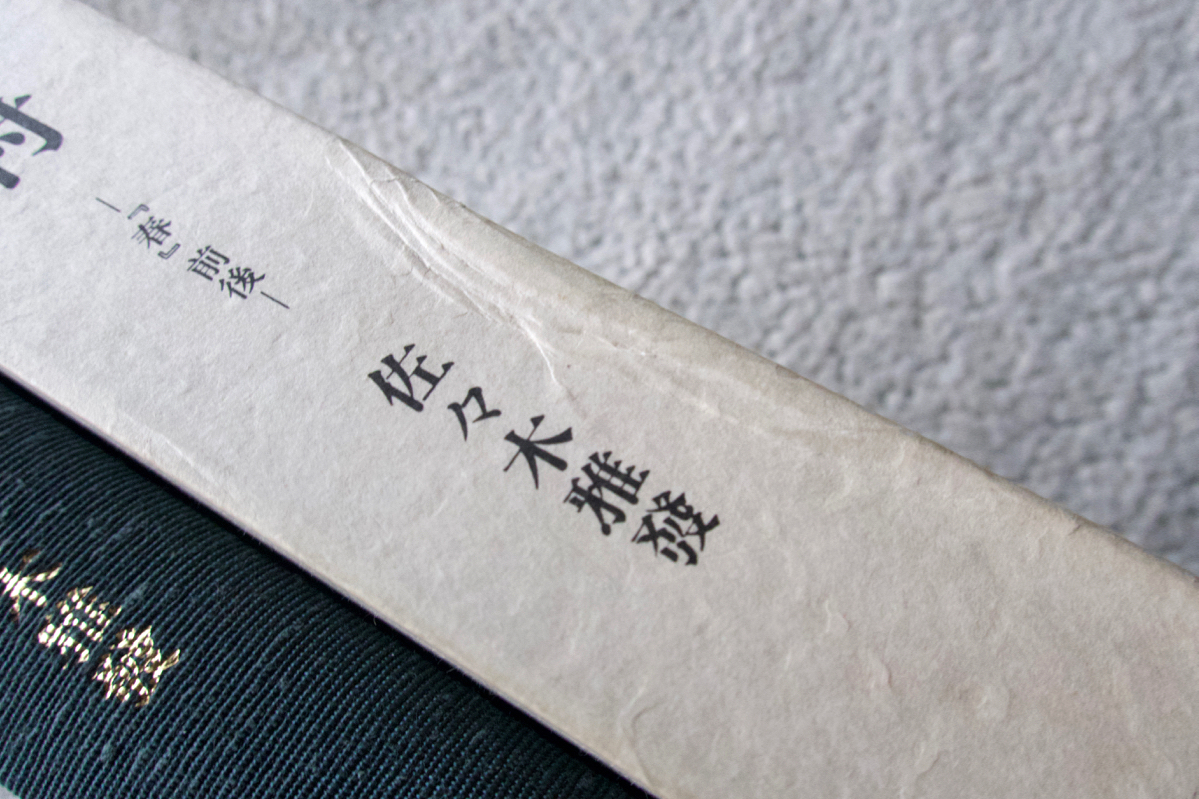 村
―『春』前後―
佐々木雅發
木雅發